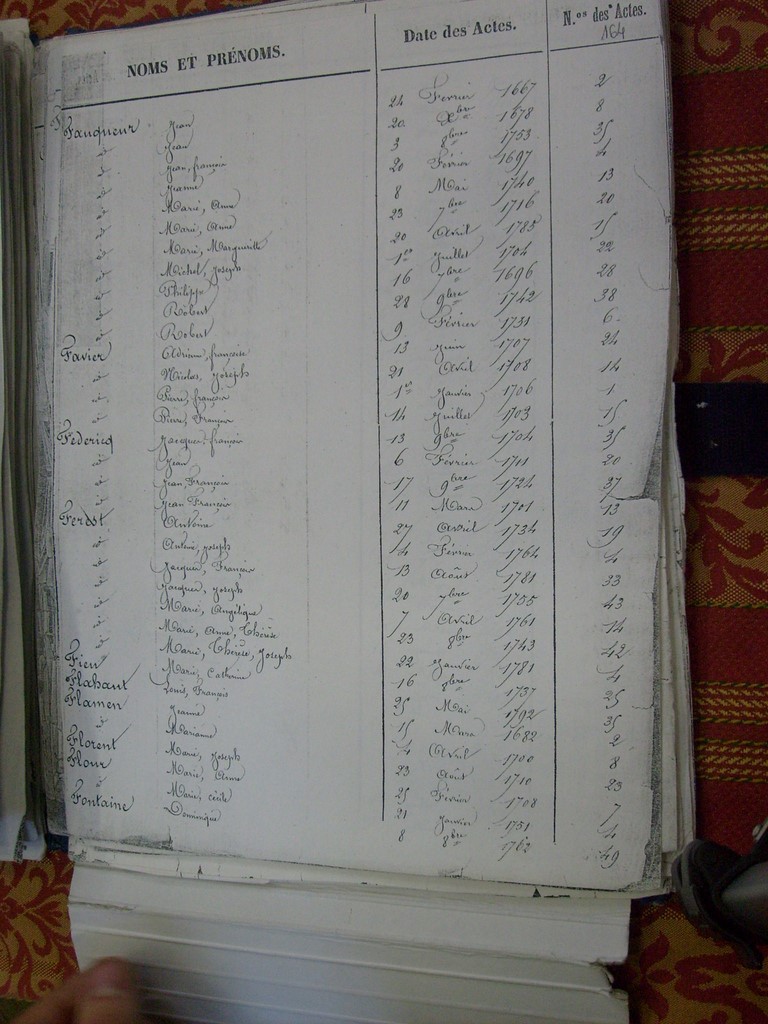 NOMS ET PRÉNOMS. Date des Actes. N.os des Actes.
164
Fauqueur Jean 24 Février 1667 2
d° Jean 20 Xbre 1678 8
d° Jean, françois 3 8bre 1753 35
d° Jeanne 20 Février 1697 4
d° Marie, Anne 8 Mai 1740 13
d° Marie, Anne 23 7bre 1716 20
d° Marie, Marguerite 20 Avril 1785 15
d° Michel, Joseph 1er Juillet 1704 22
d° Philippe 16 7bre 1696 28
d° Robert 28 9bre 1742 38
d° Robert 9 Février 1731 6
Favier Adrienne, françoise 13 Juin 1707 24
d° Nicolas, Joseph 21 Avril 1708 14
d° Pierre, françois 1er Janvier 1706 1
d° Pierre, François 14 Juillet 1703 15
Federicq Jacques françois 13 9bre 1704 35
d° Jean 6 Février 1711 20
d° Jean François 17 9bre 1724 37
d° Jean François 11 Mars 1701 13
Ferest Antoine 27 Avril 1734 19
d° Antoine, Joseph 4 Février 1764 4
d° Jacques, François 13 Août 1781 33
d° Jacques, Joseph 20 7bre 1755 43
d° Marie, Angélique 7 Avril 1761 14
d° Marie, Anne, Thérèse 23 8bre 1743 42
d° Marie, Thérèse, Joseph 22 Janvier 1781 4
Fien Marie, Catherine 16 8bre 1737 25
Flahaut Louis, François 25 Mai 1792 35
Flamen Jeanne 15 Mars 1682 2
d° Marianne 4 Avril 1700 8
Florent Marie, Joseph 23 Août 1710 23
Flour Marie, Anne 25 Février 1708 7
d° Marie, cécile 21 Janvier 1751 4
Fontaine Dominique 8 8bre 1762 49